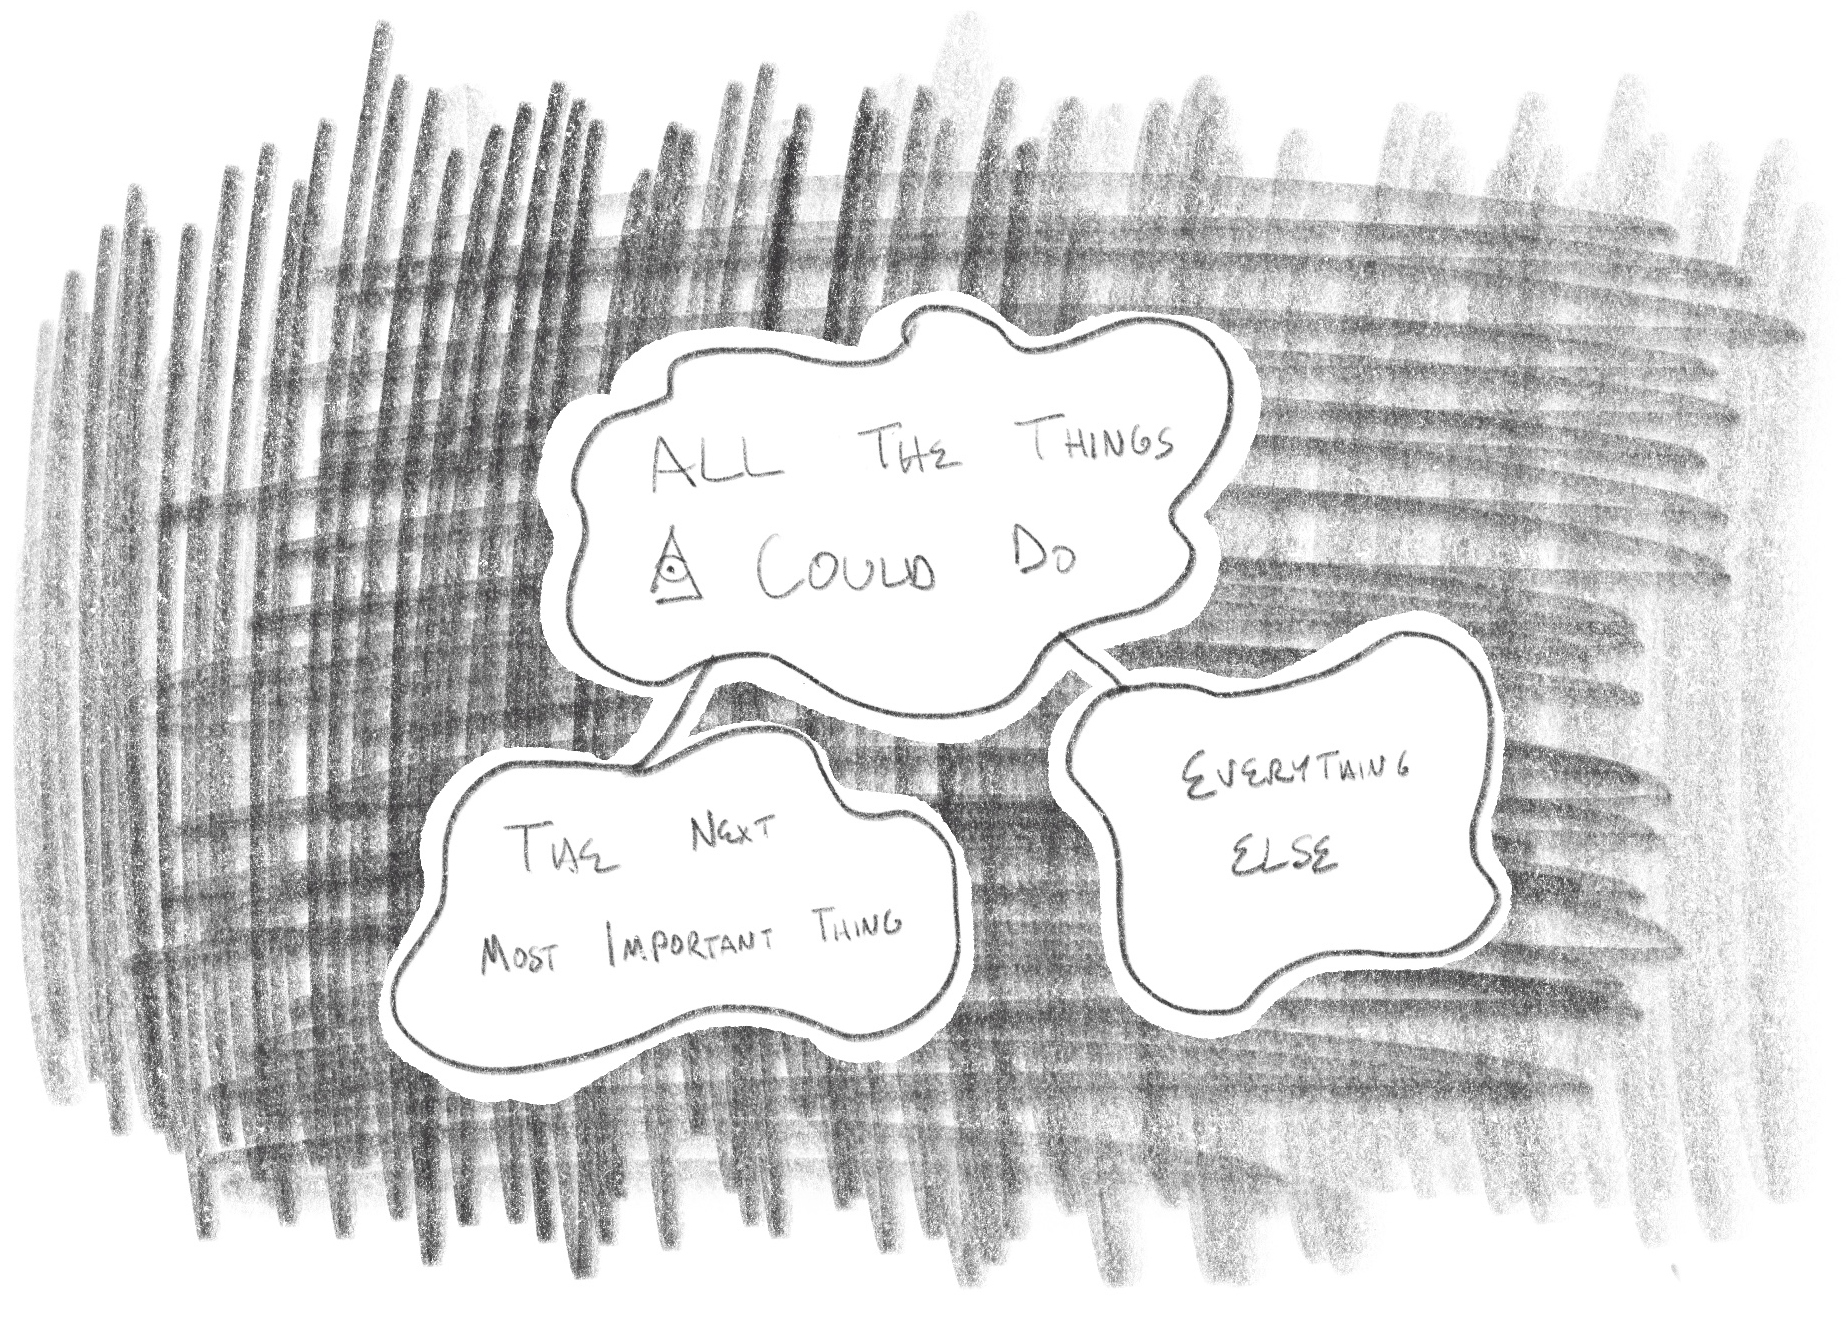 ALL THE THINGS
COULD DO
THE NEXT
MOST IMPORTANT THING
EVERYTHING
ELSE